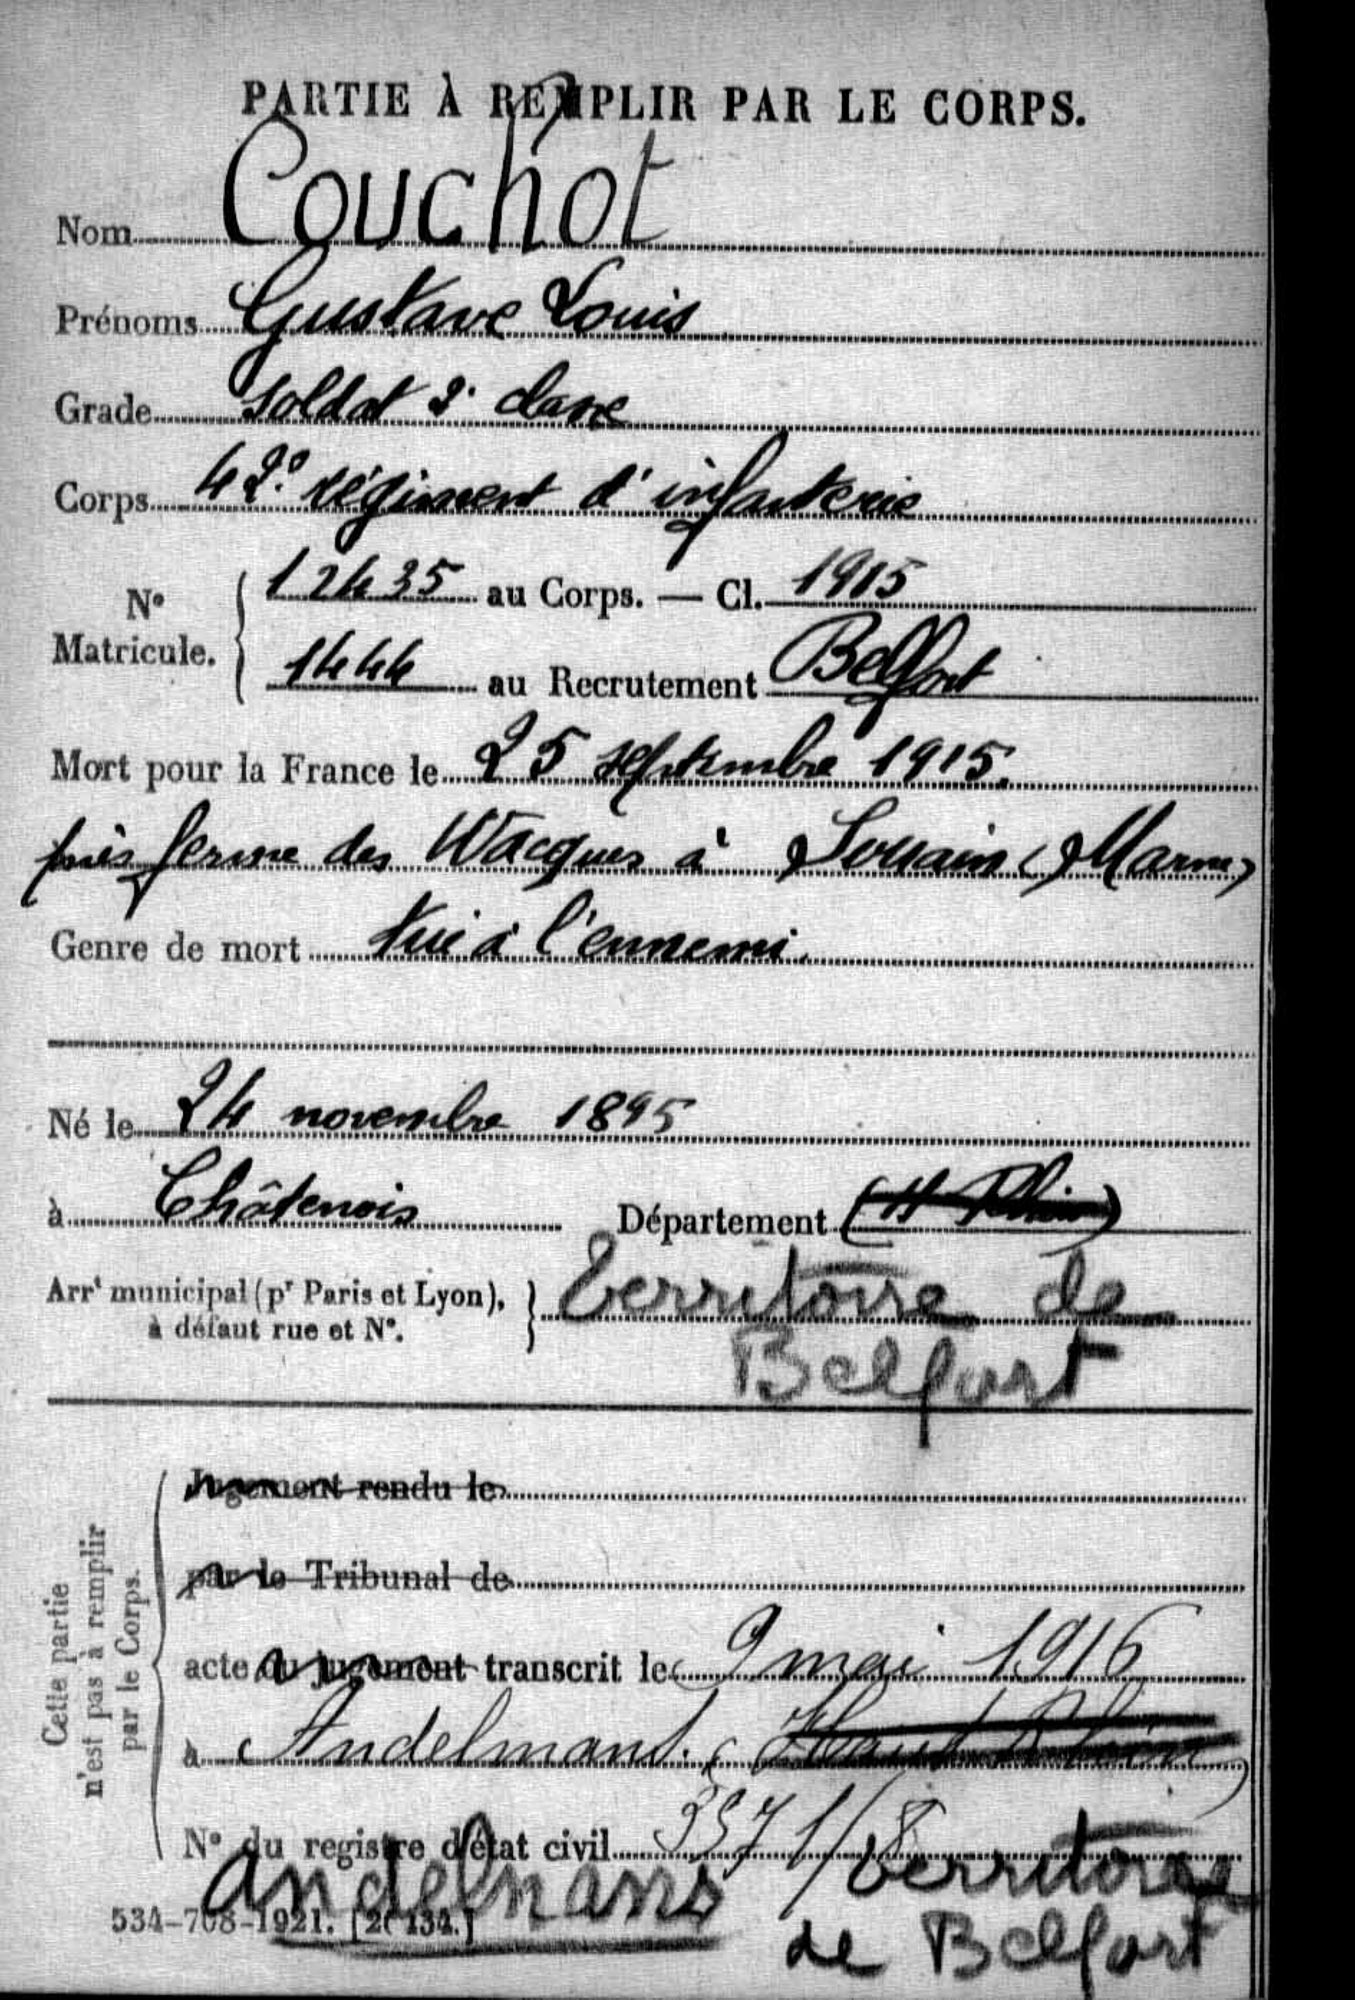 PARTIE À REMPLIR PAR LE CORPS.
Nom Couchot
Prénoms Gustave Louis
Grade Soldat 2e classe
Corps 42e régiment d'infanterie
N° Matricule. { 12435 au Corps. — Cl. 1915
1444 au Recrutement Belfort
Mort pour la France le 25 septembre 1915.
près ferme des Wacques à Souain (Marne)
Genre de mort tué à l'ennemi.
Né le 24 novembre 1895
à Châtenois Département (H Rhin)
Arrt municipal (pr Paris et Lyon), à défaut rue et N°. } Territoire de
Belfort
Cette partie n'est pas à remplir par le Corps.
Jugement rendu le
par le Tribunal de
acte du jugement transcrit le 9 mai 1916
à Andelmans (Haut Rhin)
N° du registre d'état civil 3571/8
Andelnans Territoire
534-708-1921. [26434.]
de Belfort